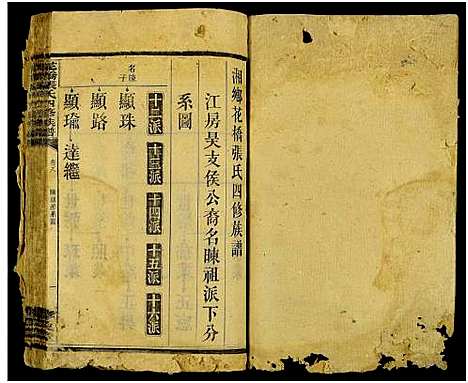 湘鄉花橋張氏四修族譜
江房昊支侯公裔名暕祖派下分
系圖
十二派 十三派 十四派 十五派 十六派
名暕子
顯珠
顯路
顯瑜 達繼